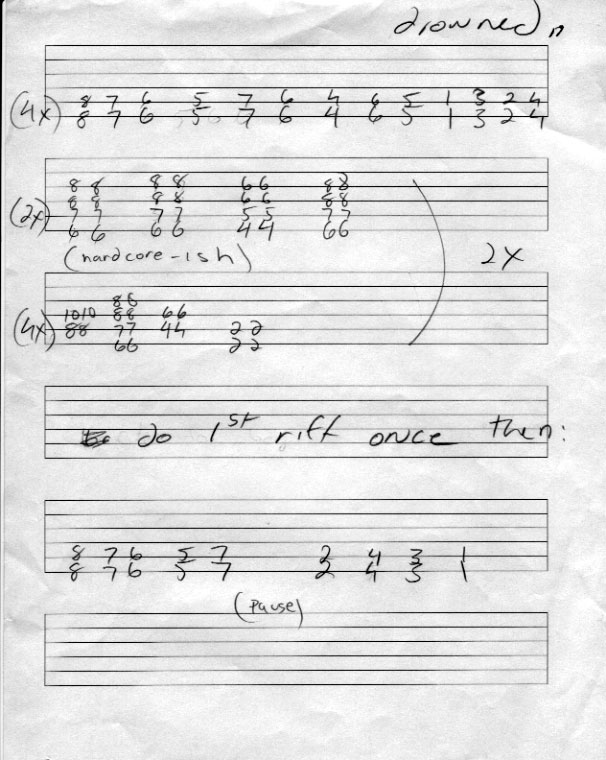 drowned
(4x) 8 7 6 5 7 6 4 6 5 1 3 2 4
8 7 6 5 7 6 4 6 5 1 3 2 4
8 8 8 8 6 6 8 8
(2x) 8 8 8 8 6 6 8 8 2x
7 7 7 7 5 5 7 7
6 6 6 6 4 4 6 6
(hardcore-ish)
8 8
10 10 8 8 6 6
(4x) 8 8 7 7 4 4 2 2
6 6 2 2
do 1st riff once then:
8 7 6 5 7 2 4 3 1
8 7 6 5 7 2 4 3 1
(pause)